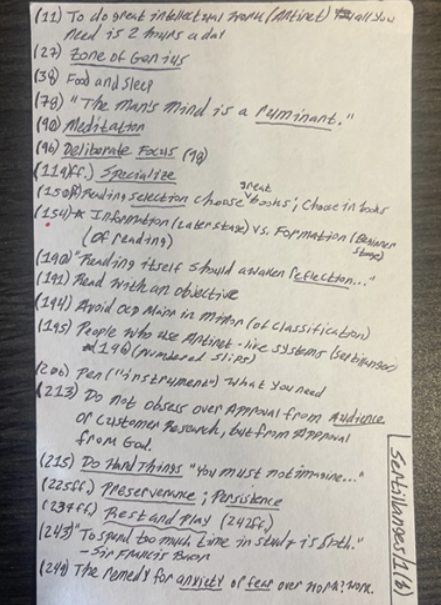 (11) To do great intellectual work (Antinet) all you
need is 2 hours a day
(27) Zone of Genius
(38) Food and sleep
(78) "The man's mind is a ruminant."
(90) Meditation
(96) Deliberate Focus (98)
(119ff.) Specialize
(150ff) Reading selection choose great books; Choose in books
(154)* Information (Later stage) vs. Formation (Beginner stage)
(of reading)
(190) "Reading itself should awaken reflection..."
(191) Read with an objective
(194) Avoid OCD Major in minor (of classification)
(195) People who use Antinet-like systems (Sertillanges)
*196 (numbered slips)
(206) Pen ("instrument") what you need
(213) Do not obsess over Approval from Audience
or Customer Research, but from Approval
from God.
(215) Do Hard Things "You must not imagine..."
(225ff.) Preserverance; Persistence
(239ff.) Rest and Play (242ff.)
(243) "To spend too much time in study is sloth."
-Sir Francis Bacon
(249) The remedy for anxiety or fear over work? Work.
Sertillanges/1(b)